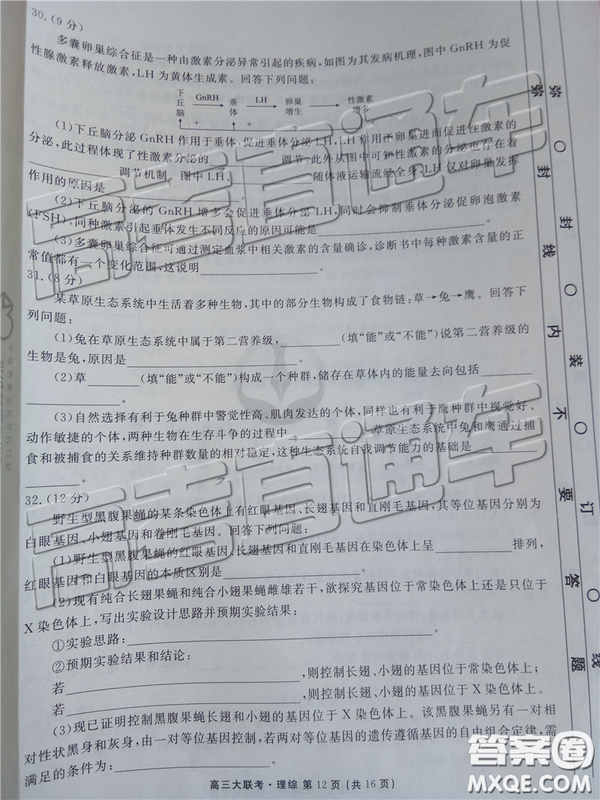 30.(9分)
多囊卵巢综合征是一种由激素分泌异常引起的疾病,如图为其发病机理,图中 GnRH 为促
性腺激素释放激素,LH 为黄体生成素。回答下列问题:
下丘脑 GnRH 垂体 LH 卵巢增生 性激素增多
(1)下丘脑分泌 GnRH 作用于垂体,促进垂体分泌 LH,LH 作用于卵巢进而促进性激素的
分泌,此过程体现了性激素分泌的 调节,此外从图中可知性激素的分泌也存在着
调节机制。图中 LH、 随体液运输流经全身,LH 仅对卵巢发挥
作用的原因是
(2)下丘脑分泌的 GnRH 增多会促进垂体分泌 LH,同时会抑制垂体分泌促卵泡激素
(FSH),同种激素引起垂体发生不同反应的原因可能是 。
(3)多囊卵巢综合征可通过测定血浆中相关激素的含量确诊,诊断书中每种激素含量的正
常值都有一个变化范围,这说明
31.(8分)
某草原生态系统中生活着多种生物,其中的部分生物构成了食物链:草→兔→鹰。回答下
列问题:
(1)兔在草原生态系统中属于第二营养级, (填“能”或“不能”)说第二营养级的
生物是兔,原因是 。
(2)草 (填“能”或“不能”)构成一个种群,储存在草体内的能量去向包括
。
(3)自然选择有利于兔种群中警觉性高、肌肉发达的个体,同样也有利于鹰种群中视觉好、
动作敏捷的个体,两种生物在生存斗争的过程中 。草原生态系统中兔和鹰通过捕
食和被捕食的关系维持种群数量的相对稳定,这种生态系统自我调节能力的基础是
32.(12分)
野生型黑腹果蝇的某条染色体上有红眼基因、长翅基因和直刚毛基因,其等位基因分别为
白眼基因、小翅基因和卷刚毛基因。回答下列问题:
(1)野生型黑腹果蝇的红眼基因、长翅基因和直刚毛基因在染色体上呈 排列,
红眼基因和白眼基因的本质区别是 。
(2)现有纯合长翅果蝇和纯合小翅果蝇雌雄若干,欲探究基因位于常染色体上还是只位于
X 染色体上,写出实验设计思路并预期实验结果:
①实验思路: 。
②预期实验结果和结论:
若 ,则控制长翅、小翅的基因位于常染色体上;
若 ,则控制长翅、小翅的基因位于 X 染色体上。
(3)现已证明控制黑腹果蝇长翅和小翅的基因位于 X 染色体上。该黑腹果蝇另一对相
对性状黑身和灰身,由一对等位基因控制,若两对等位基因的遗传遵循基因的自由组合定律,需
满足的条件为:
高三大联考·理综 第 12 页(共 16 页)
弥 封 线 内 不 要 答 题
弥 封 线 装 订 线
高考直通车
高考直通车
答案圈
MXQE.COM